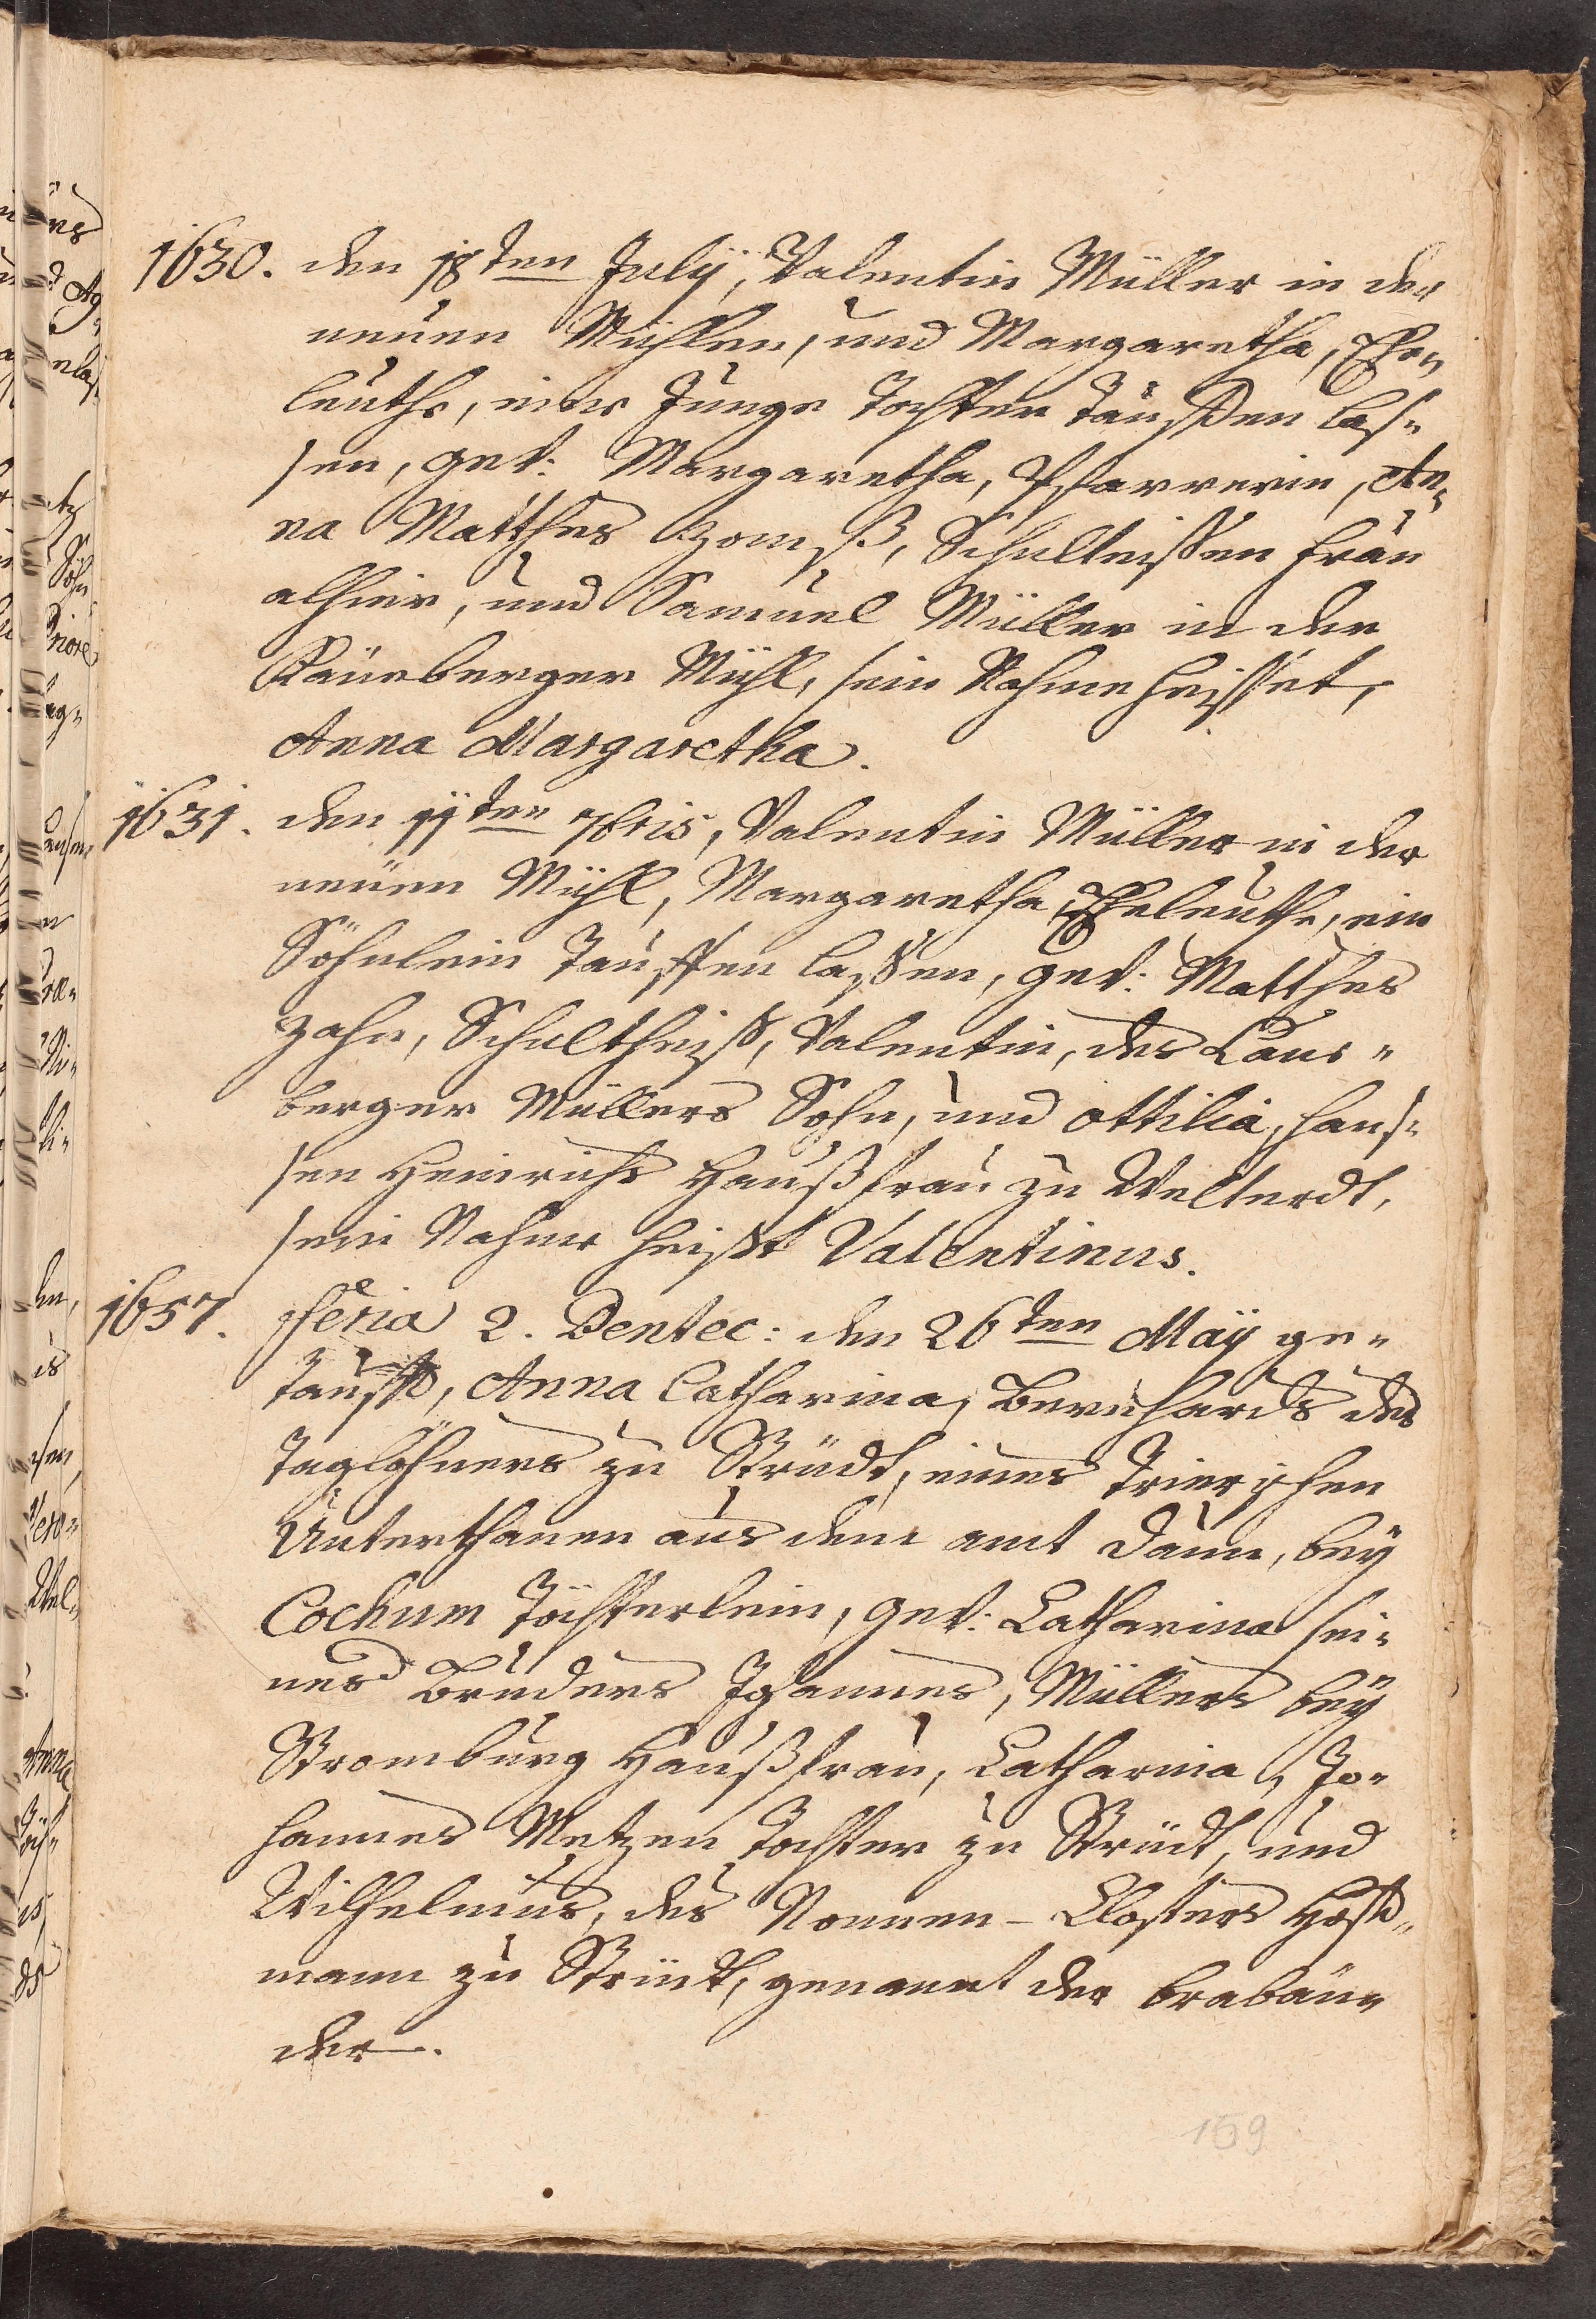 1630. den 18ten July, Valentin Müller in der
neuen Mühlen, und Margaretha, Ehe„
leuthe, eine Junge Tochter Tauffen las„
sen, gev: Margaretha, Pfarrerin, An„
na Matthes, Schultheißen frau
alhier, und Samuel Müller in der
Mühl, sein Nahme heisset,
Anna Margaretha.
1631. den 11ten 7bris, Valentin Müller in der
neuen Mühl, Margaretha Eheleuthe, ein
Söhnlein Tauffen lassen, gev: Matthes
Zahn, Schultheiß, Valentin, des Laur„
berger Müllers Sohn, und Ottilia, Han„
sen Heinrichs Haußfrau zu Welterdt,
sein Nahme heißt Valentinus.
1657. Feria 2. Pentec: den 26ten Maÿ ge„
taufft, Anna Catharina, Bernhards des
Taglöhners zu Strüdt, eines Trierischen
Unterthanen aus dem amt Daun, beÿ
Cochum Töchterlein, gev: Catharina sei„
nes Bruders Johannes, Müllers beÿ
Stromburg Haußfrau, Catharina, Jo„
hannes Metzen Tochter zu Strüdt, und
Wilhelmus, des Nonnen-Closters Hoff„
mann zu Strüdt, genannt der braban„
der.
159